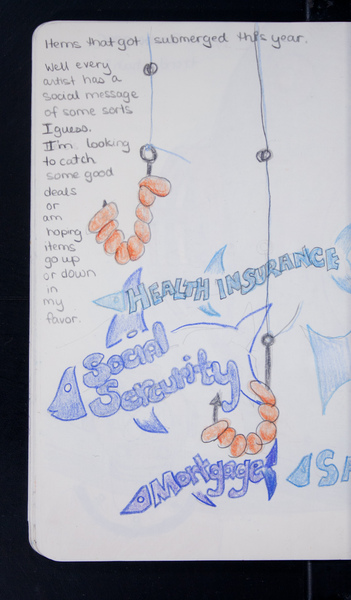 Items that got submerged this year.
Well every
artist has a
social message
of some sorts
I guess.
I'm looking
to catch
some good
deals
or
am
hoping
items
go up
or down
in
my
favor.
HEALTH INSURANCE
Social
Sercurity
Mortgage
SA